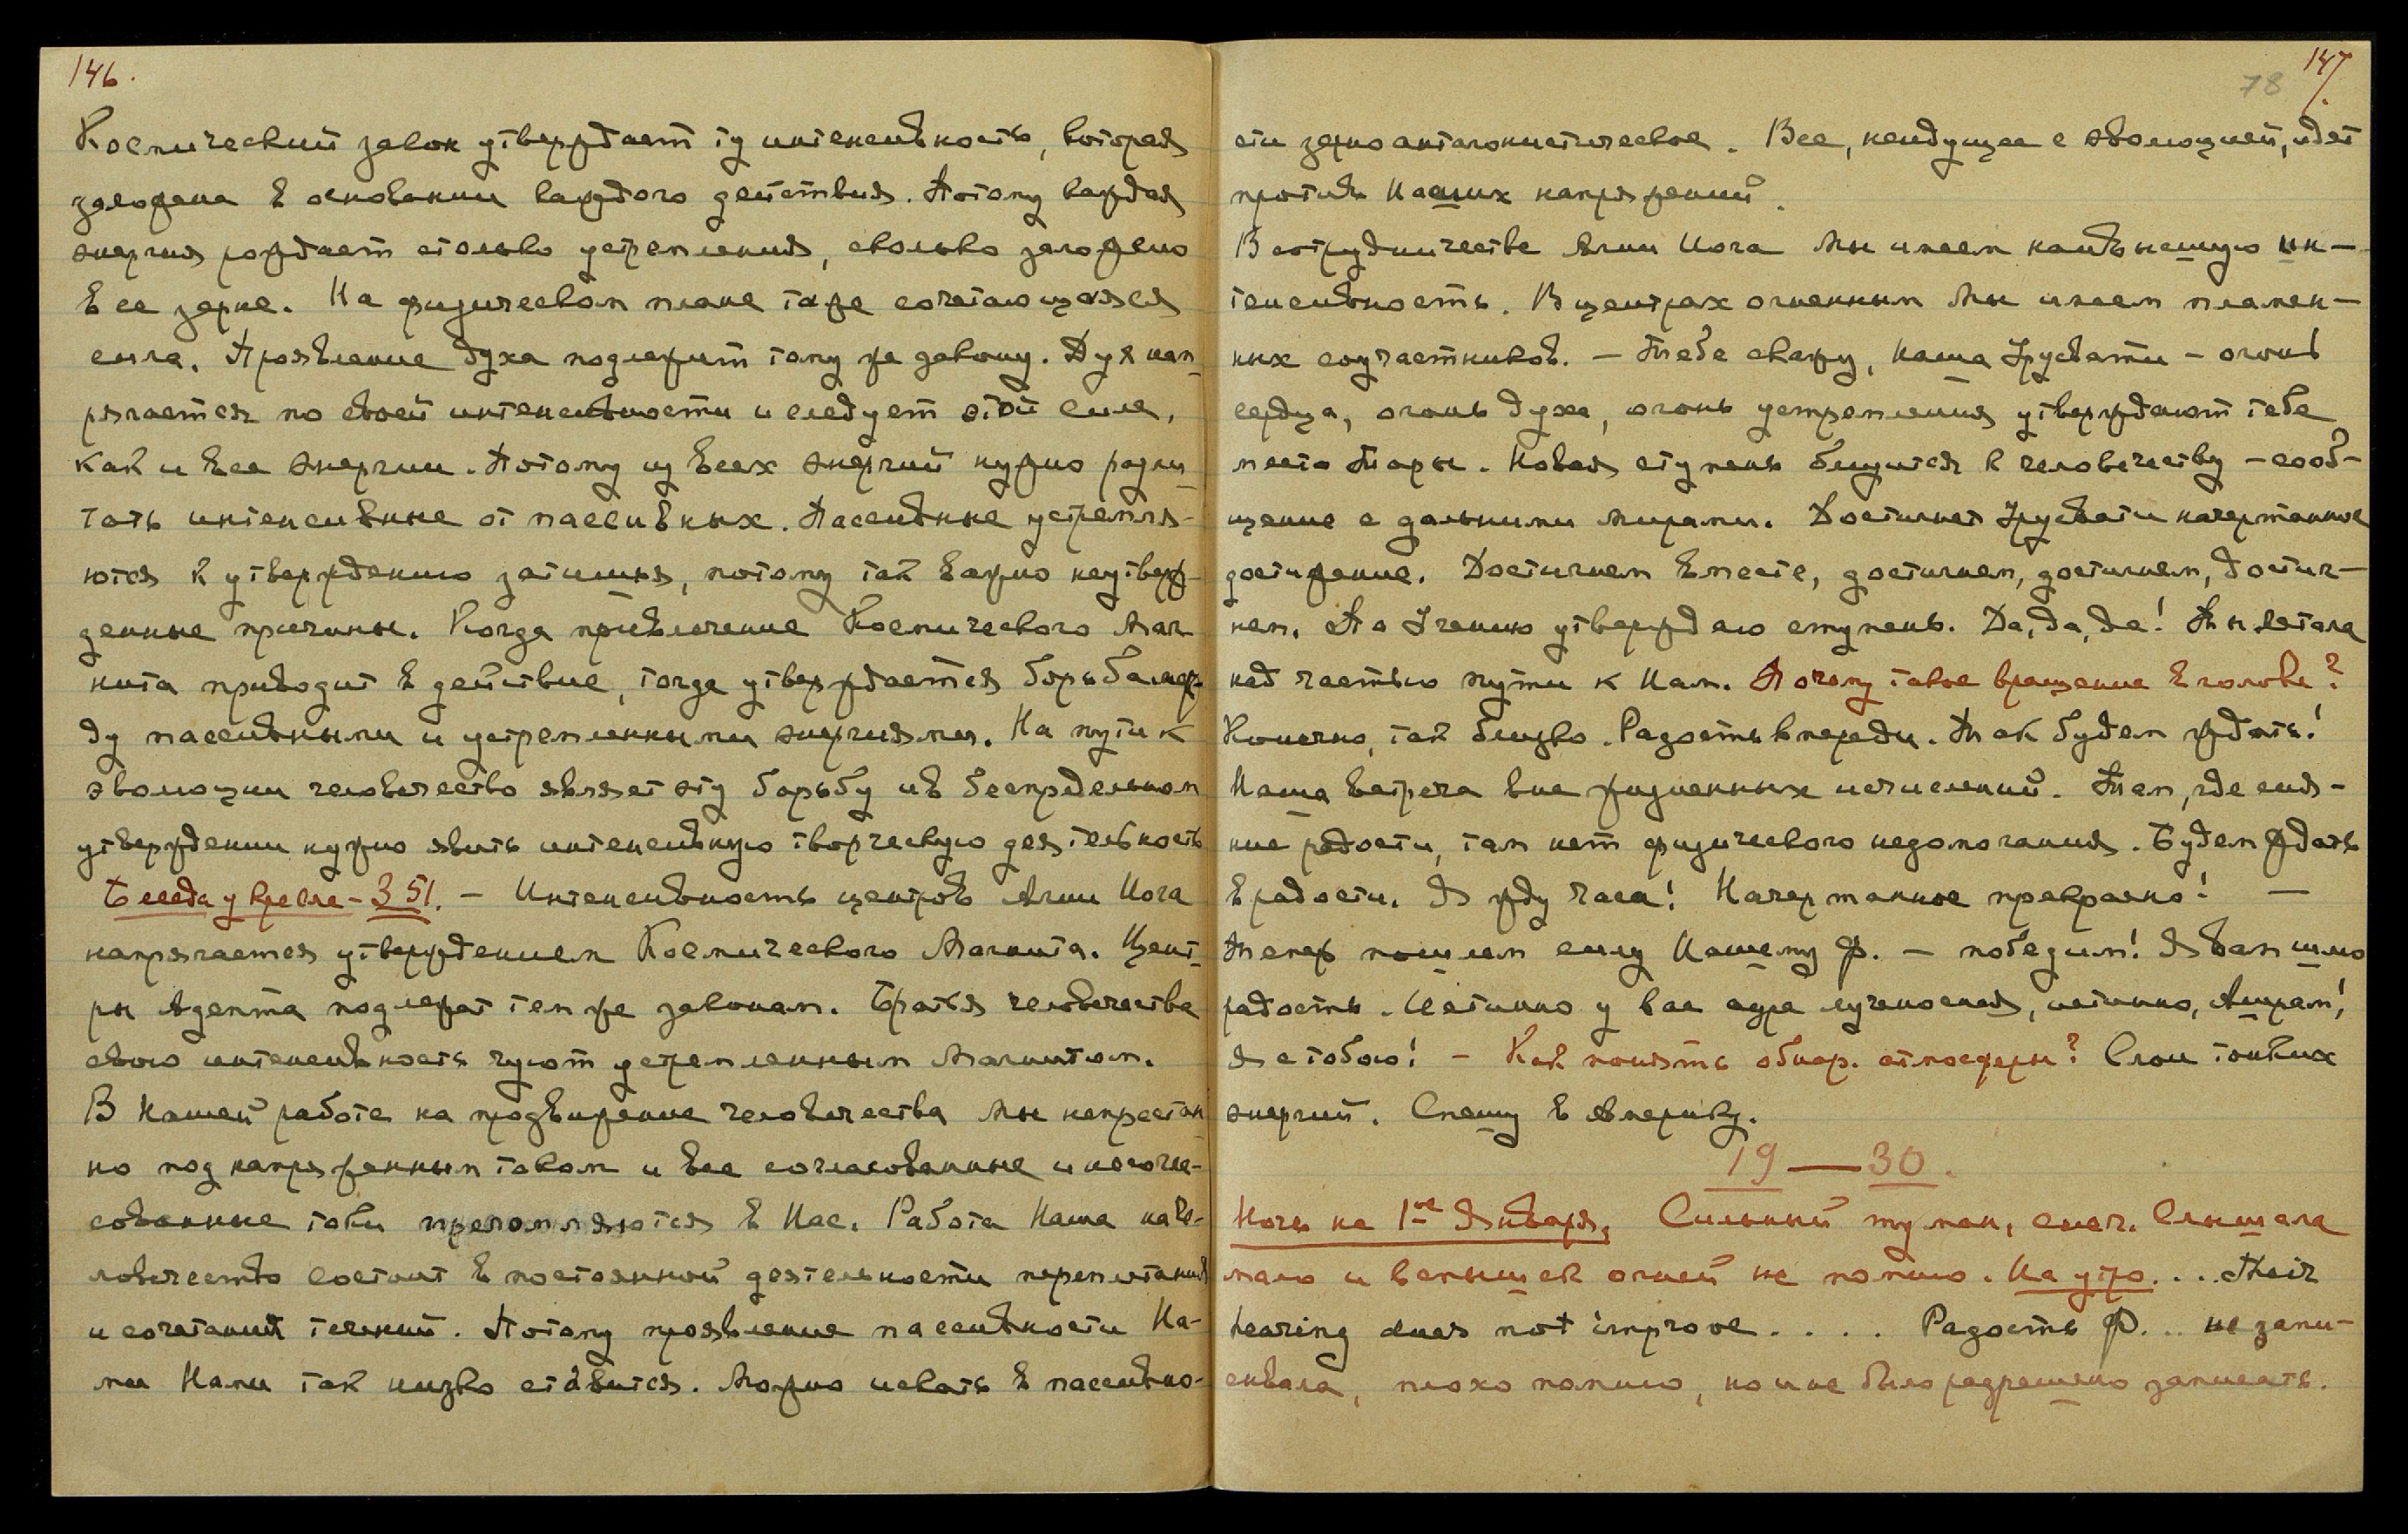 146.
Космический закон утверждает ту интенсивность, которая
заложена в основании каждого действия. Потому каждая
энергия рождает столько устремления, сколько заложено
в ее зерне. На физическом плане та же сочетающаяся
сила. Проявление духа подлежит тому же закону. Дух нап-
рягается по своей интенсивности и следует этой силе,
как и все энергии. Потому из всех энергий нужно разли-
чать интенсивные от пассивных. Пассивные устремля-
ются к утверждению затишья, потому так важно неутверж-
денные причины. Когда привлечение Космического Маг-
нита приводит в действие, тогда утверждается борьба меж-
ду пассивными и устремленными энергиями. На пути к
эволюции человечество являет эту борьбу и в беспредельном
утверждении нужно явить интенсивную творческую деятельность
Беседа у кресла - 351. - Интенсивность центров Агни Йога
напрягается утверждением Космического Магнита. Цент-
ры Адепта подлежат тем же законам. Братья человечества
свою интенсивность чуют устремленным Магнитом.
В Нашей работе на продвижение человечества Мы непрестан-
но под напряженным током и все согласованные и несогла-
сованные токи преломляются в Нас. Работа Наша на че-
ловечество состоит в постоянной деятельности переплетания
и сочетаний течений. Потому проявление пассивности На-
ми Нами так низко ставится. Можно искать в пассивно-
78 147.
сти зерно антагонистическое. Все, неидущее с эволюцией, идет
против Наших напряжений.
В сотрудничестве Агни Йога Мы имеем наивысшую ин-
тенсивность. В центрах огненным Мы имеем пламен-
ных соучастников. - Тебе скажу, Наша Урусвати - огонь
сердца, огонь духа, огонь устремления утверждают тебе
место Тары. Новая ступень близится к человечеству - сооб-
щение с дальними мирами. Достигнет Урусвати начертанное
достижение. Достигнем вместе, достигнем, достигнем, достиг-
нем. По Учению утверждаю ступень. Да, да, да! Ты летала
над частью пути к Нам. Почему такое вращение в голове?
Конечно, так близко. Радость впереди. Так будем ждать!
Наша встреча вне жизненных исчислений. Там, где сия-
ние радости, там нет физического недомогания. Будем ждать
в радости. Я жду часа! Начертанное прекрасно! —
Теперь пошлем силу Нашему Ф. - победим! Я вам шлю
радость. Истинно у вас аура лученосная, истинно, Ашрам!
Я с тобою! - Как понять обнар. атмосферы? Слои тонких
энергий. Спешу в Америку.
19 — 30.
Ночь на 1ое Января. Сильный туман, снег. Слышала
мало и вспышек огней не помню. На утро.... Their
hearing does not improve.... Радость Ф... не запи-
сывала, плохо помню, но и не было разрешено записать.